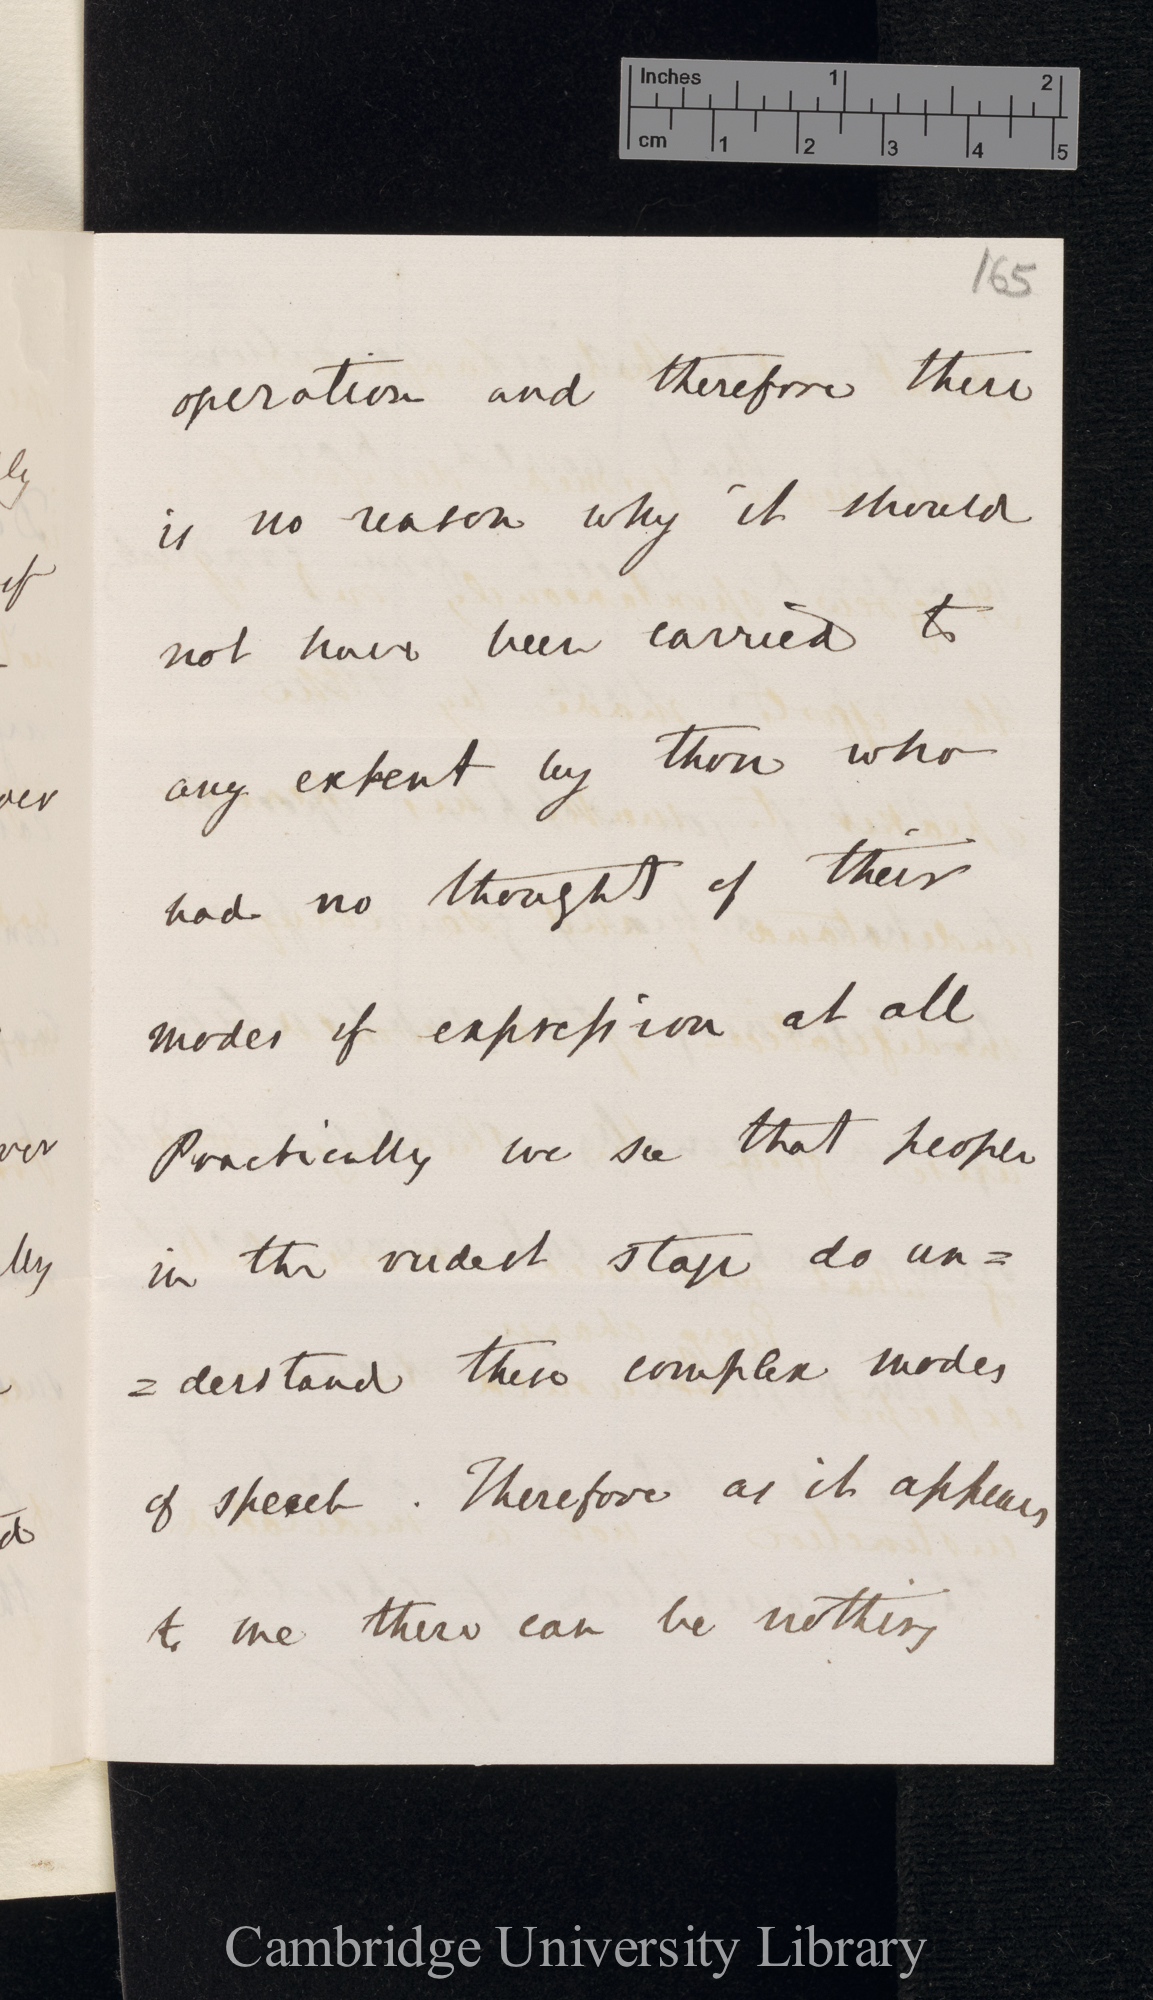 Inches 1 2
cm 1 2 3 4 5
165
operation and therefore there
is no reason why it should
not have been carried to
any extent by those who
had no thought of their
modes of expression at all
Practically we see that people
in the rudest stage do un=
=derstand these complex modes
of speech . Therefore as it appears
to me there can be nothing
ly
of
ver
ver
lly
d
Cambridge University Library